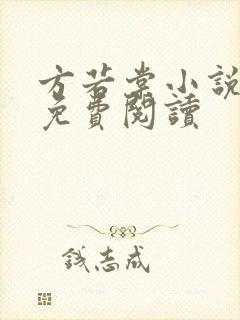 方若棠小說
免費閱讀
錢志成